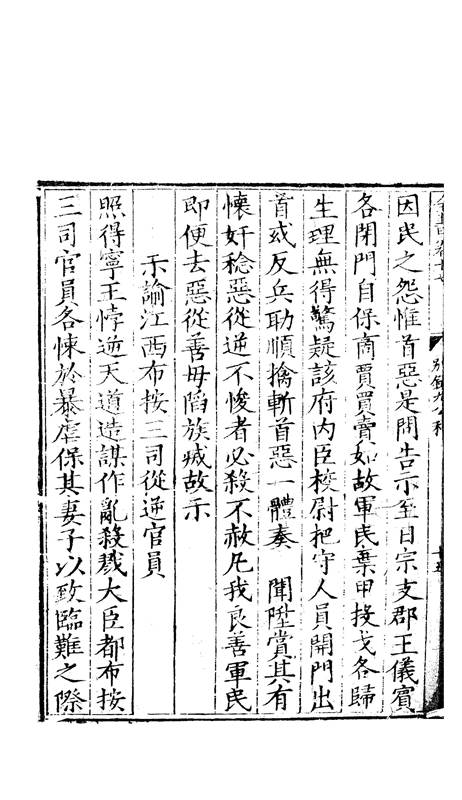 因民之怨惟首惡是問告示至日宗支郡王儀賓
各閉門自保商賈買賣如故軍民棄甲投戈各歸
生理無得驚疑該府内臣校尉把守人員開門出
首或反兵助順擒斬首惡一體奏　聞陞賞其有
懷奸稔惡從逆不悛者必殺不赦凡我良善軍民
即便去惡從善毋陷族滅故示
示諭江西布按三司從逆官員
照得寧王悖逆天道造謀作亂殺戮大臣都布按
三司官員各怵於暴虐保其妻子以致臨難之際